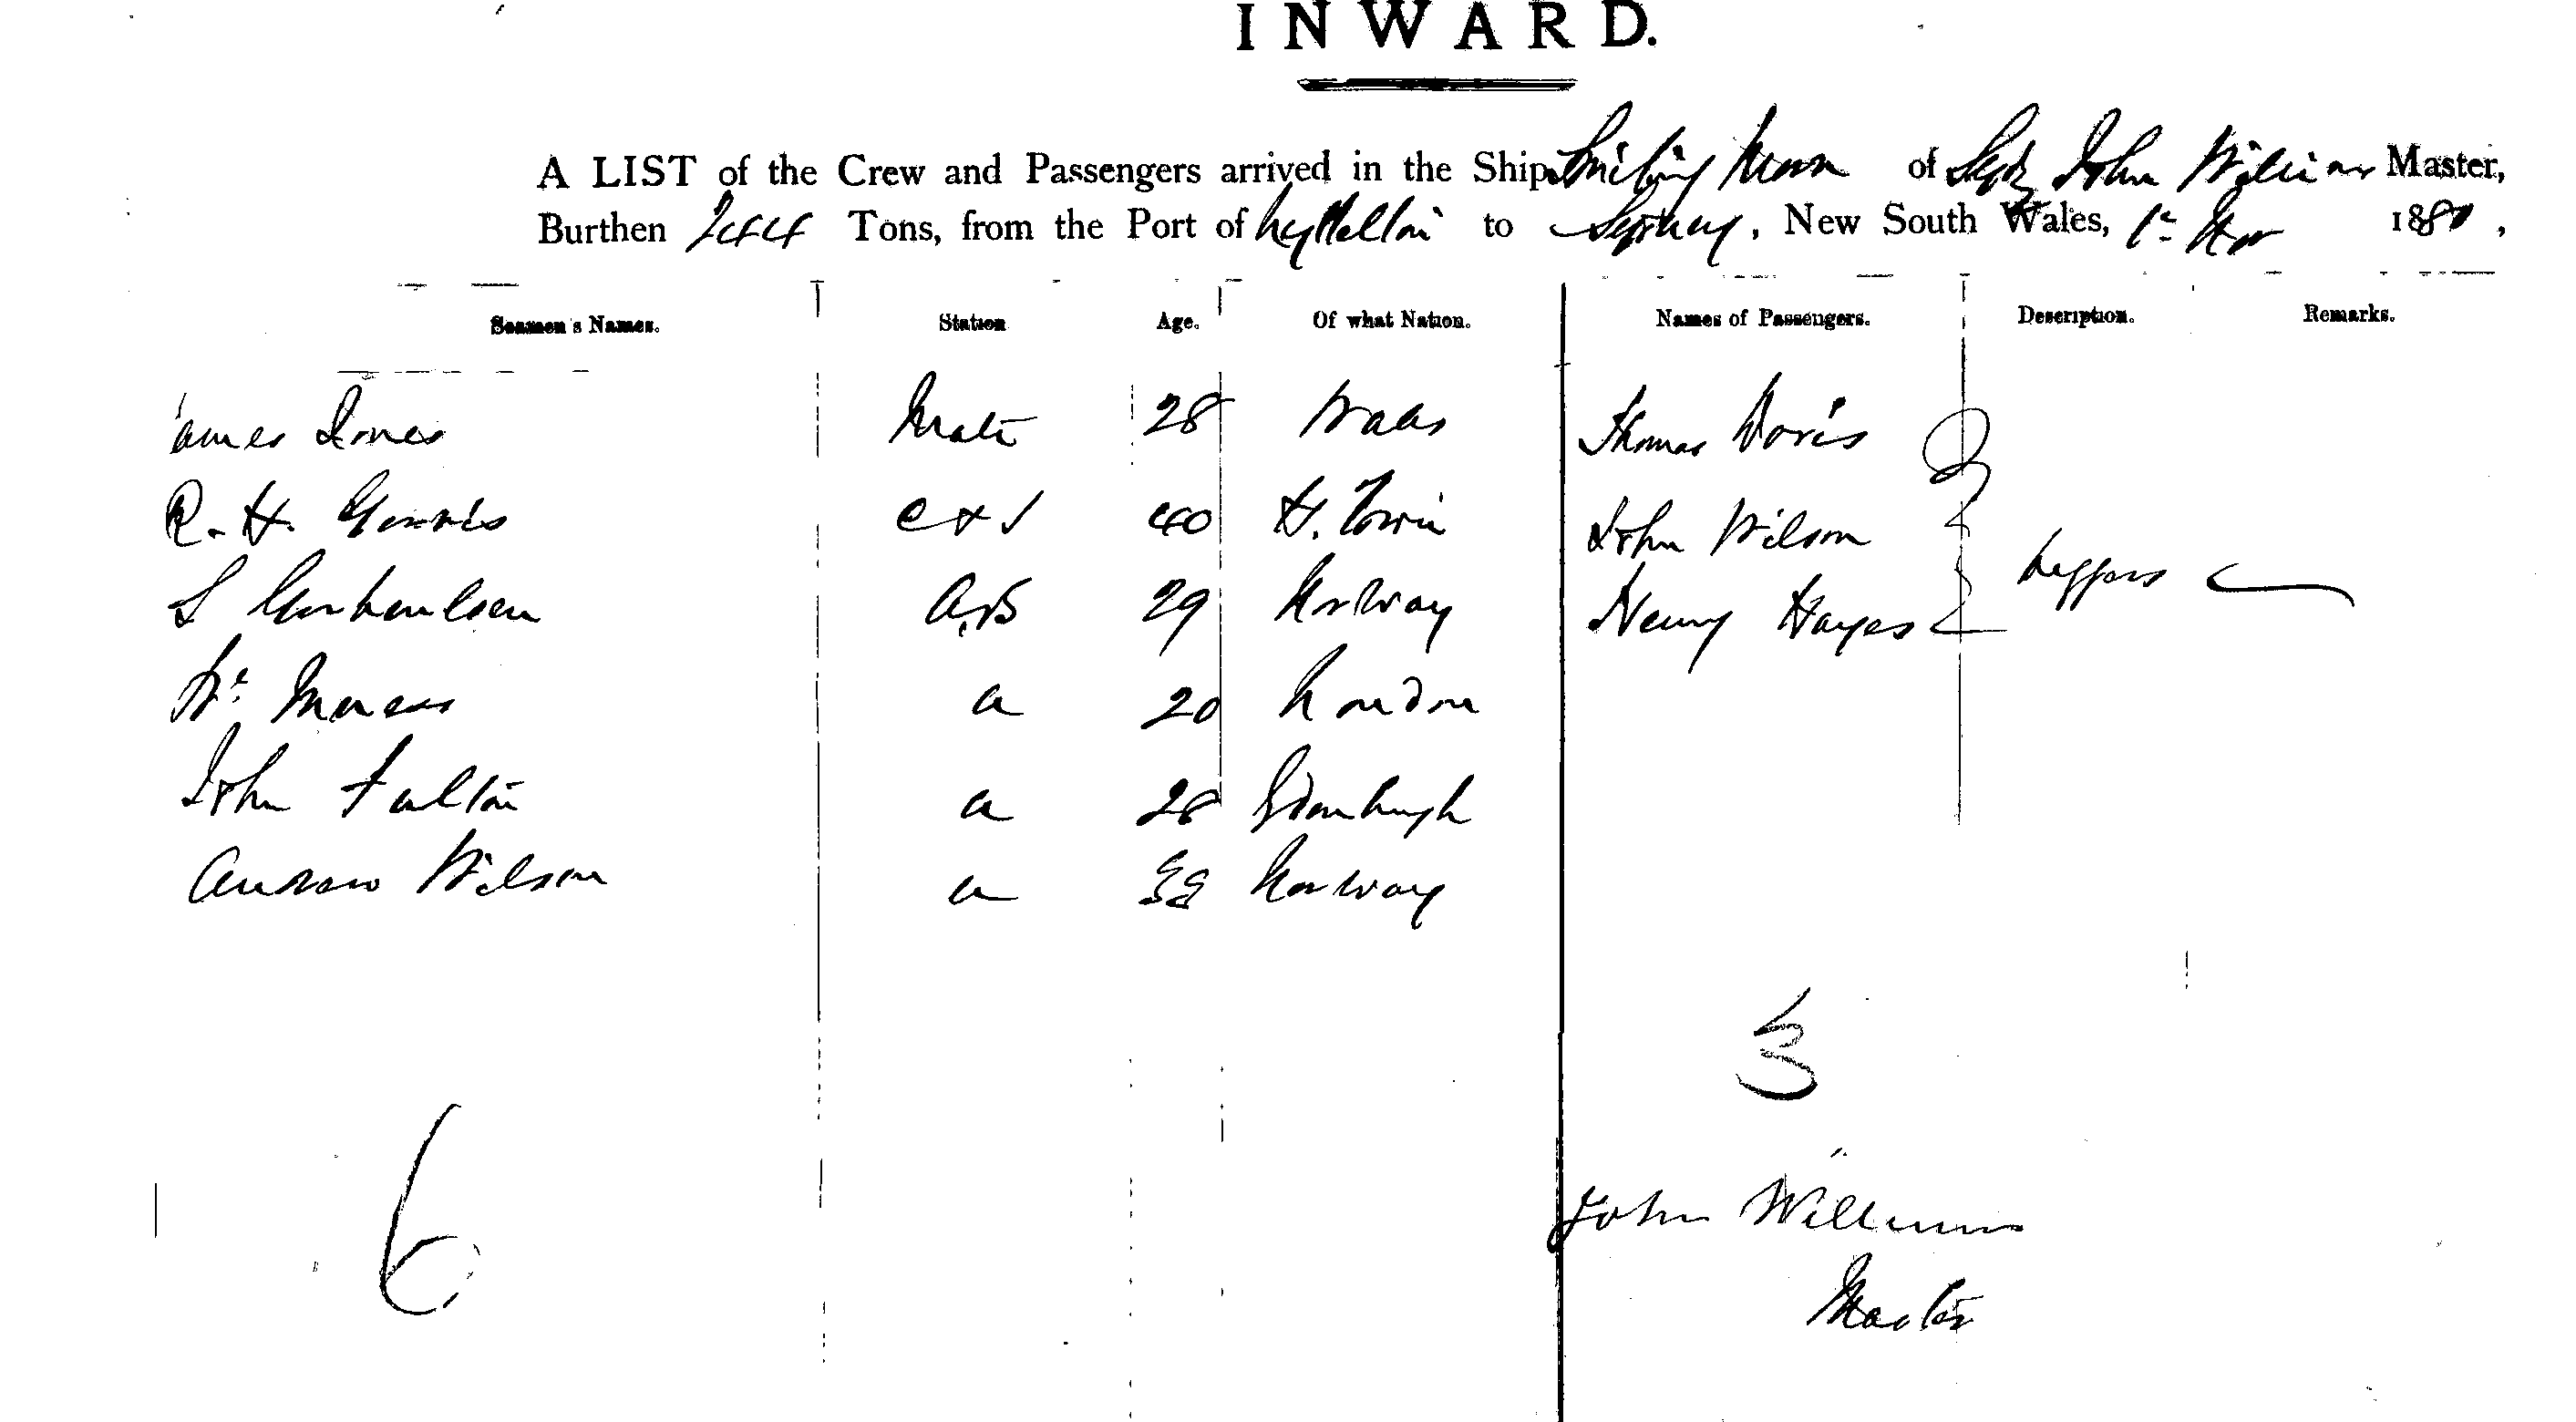 INWARD.
A LIST of the Crew and Passengers arrived in the Ship Smiling Morn of Sydy John Williams Master,
Burthen 244 Tons, from the Port of Lyttelton to Sydney, New South Wales, 1st Nov 1880,
Seamen's Names. Station Age. Of what Nation. Names of Passengers. Description. Remarks.
James Jones Mate 28 Wales Thomas Davis
R. H. 40 H. Town John Wilson
S A.B 29 Norway Henry Hayes
Wm 20 London
John Fulton 28 Edinburgh
Andrew Wilson Norway
3
6
John Williams
Master